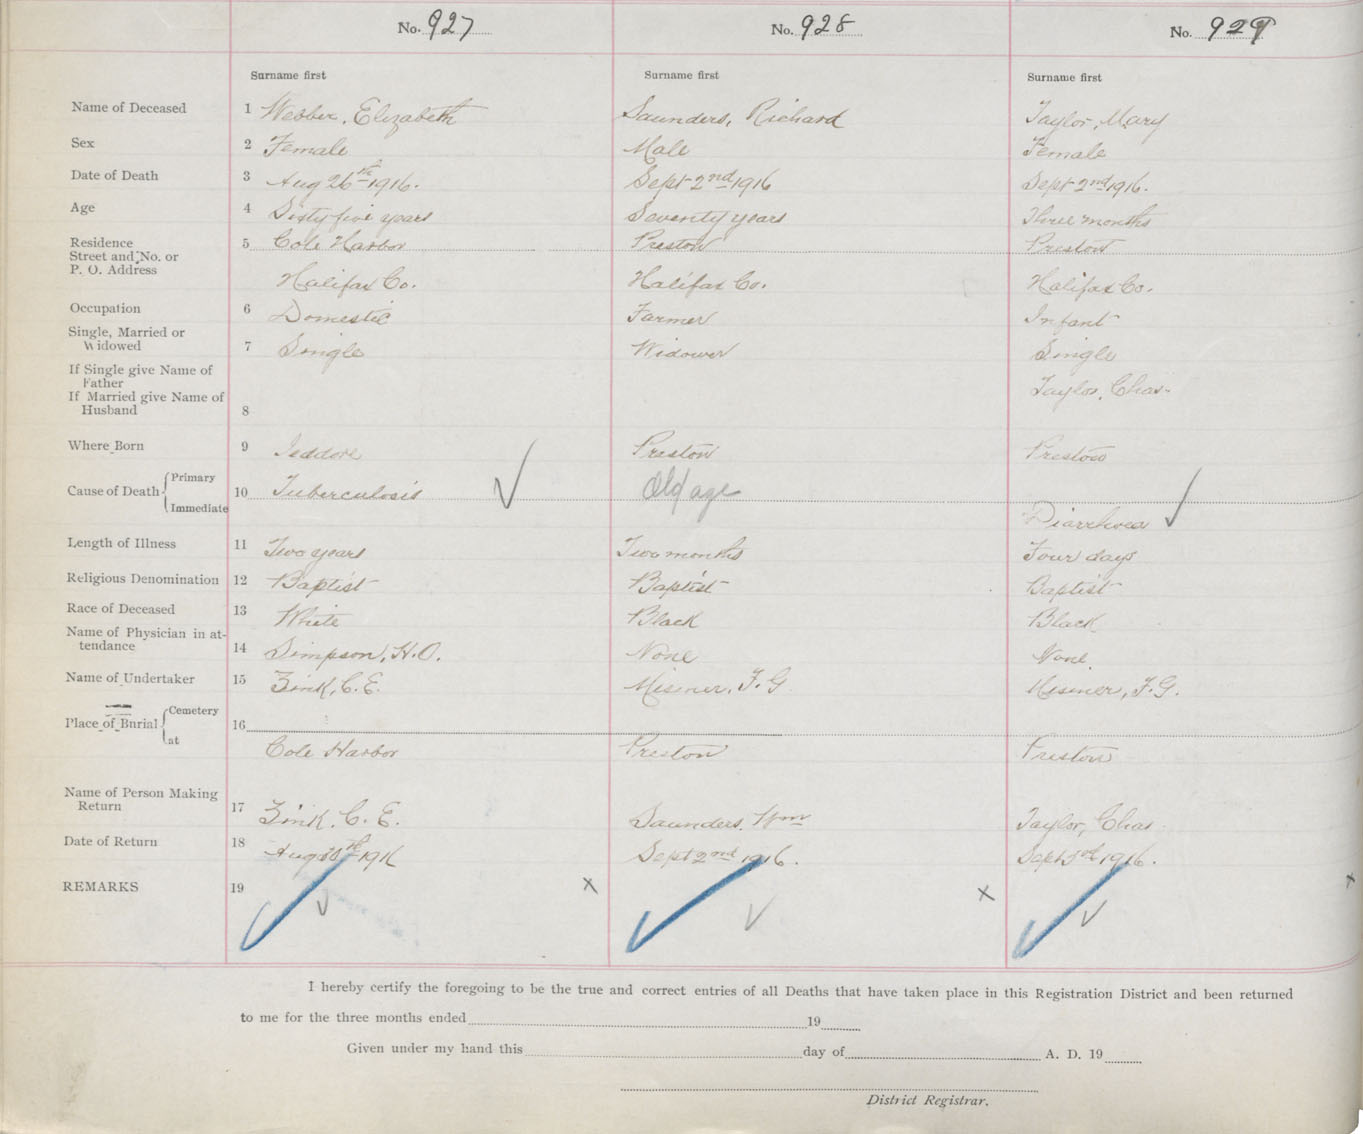 No. 927 No. 928 No. 929
Surname first Surname first Surname first
Name of Deceased 1 Webber, Elizabeth Saunders, Richard Taylor, Mary
Sex 2 Female Male Female
Date of Death 3 Aug 26th 1916. Sept 2nd 1916 Sept 2nd 1916.
Age 4 Sixty five years Seventy years Three months
Residence 5 Cole Harbor Preston Preston
Street and No. or
P. O. Address Halifax Co. Halifax Co. Halifax Co.
Occupation 6 Domestic Farmer Infant
Single, Married or
Widowed 7 Single Widower Single
If Single give Name of
Father Taylor, Chas.
If Married give Name of
Husband 8
Where Born 9 Jeddore Preston Preston
Cause of Death Primary
10 Tuberculosis Old age
Immediate Diarrhoea
Length of Illness 11 Two years Two months Four days
Religious Denomination 12 Baptist Baptist Baptist
Race of Deceased 13 White Black Black
Name of Physician in at-
tendance 14 Simpson, H.O. None None.
Name of Undertaker 15 Zink, C. E. Misener, F. G Misener, F. G.
Place of Burial Cemetery
16
at Cole Harbor Preston Preston
Name of Person Making
Return 17 Zink, C. E. Saunders, Wm Taylor, Chas
Date of Return 18 Aug 1916 Sept 2nd 1916. Sept 1916.
REMARKS 19 x x x
I hereby certify the foregoing to be the true and correct entries of all Deaths that have taken place in this Registration District and been returned
to me for the three months ended 19
Given under my hand this day of A. D. 19
District Registrar.